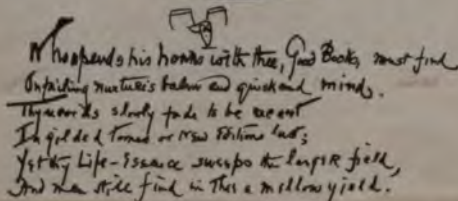 Who spends his hours with thee, Good Books, must find
Unfailing nurture's balm and quickened minds.
Thy words slowly fade to be
In gilded Tomes or New Editions last;
Yet thy Life-Essence sweeps the larger field,
And men still find in thee a mellow yield.